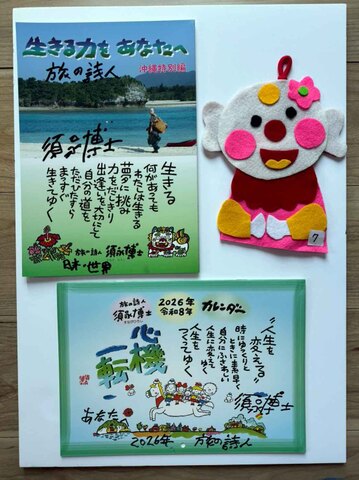 生きる力を あなたへ
沖縄特別編
旅の詩人
須永博士
生きる
何があっても
わたしは生きる
夢に挑み
力をだしきり
出逢いを大切にして
自分の道を
ただひたすら
まっすぐ
生きてゆく
旅の詩人 須永博士
日本・世界
7
旅の詩人
須永博士
2026年
令和8年
カレンダー
心機一転
"人生を
変える"
時にゆっくりと
ときに素早く
自分にふさわしい
人生に変えて
ゆく
人生を
つくってゆく
須永博士
あなたへ
2026年 旅の詩人